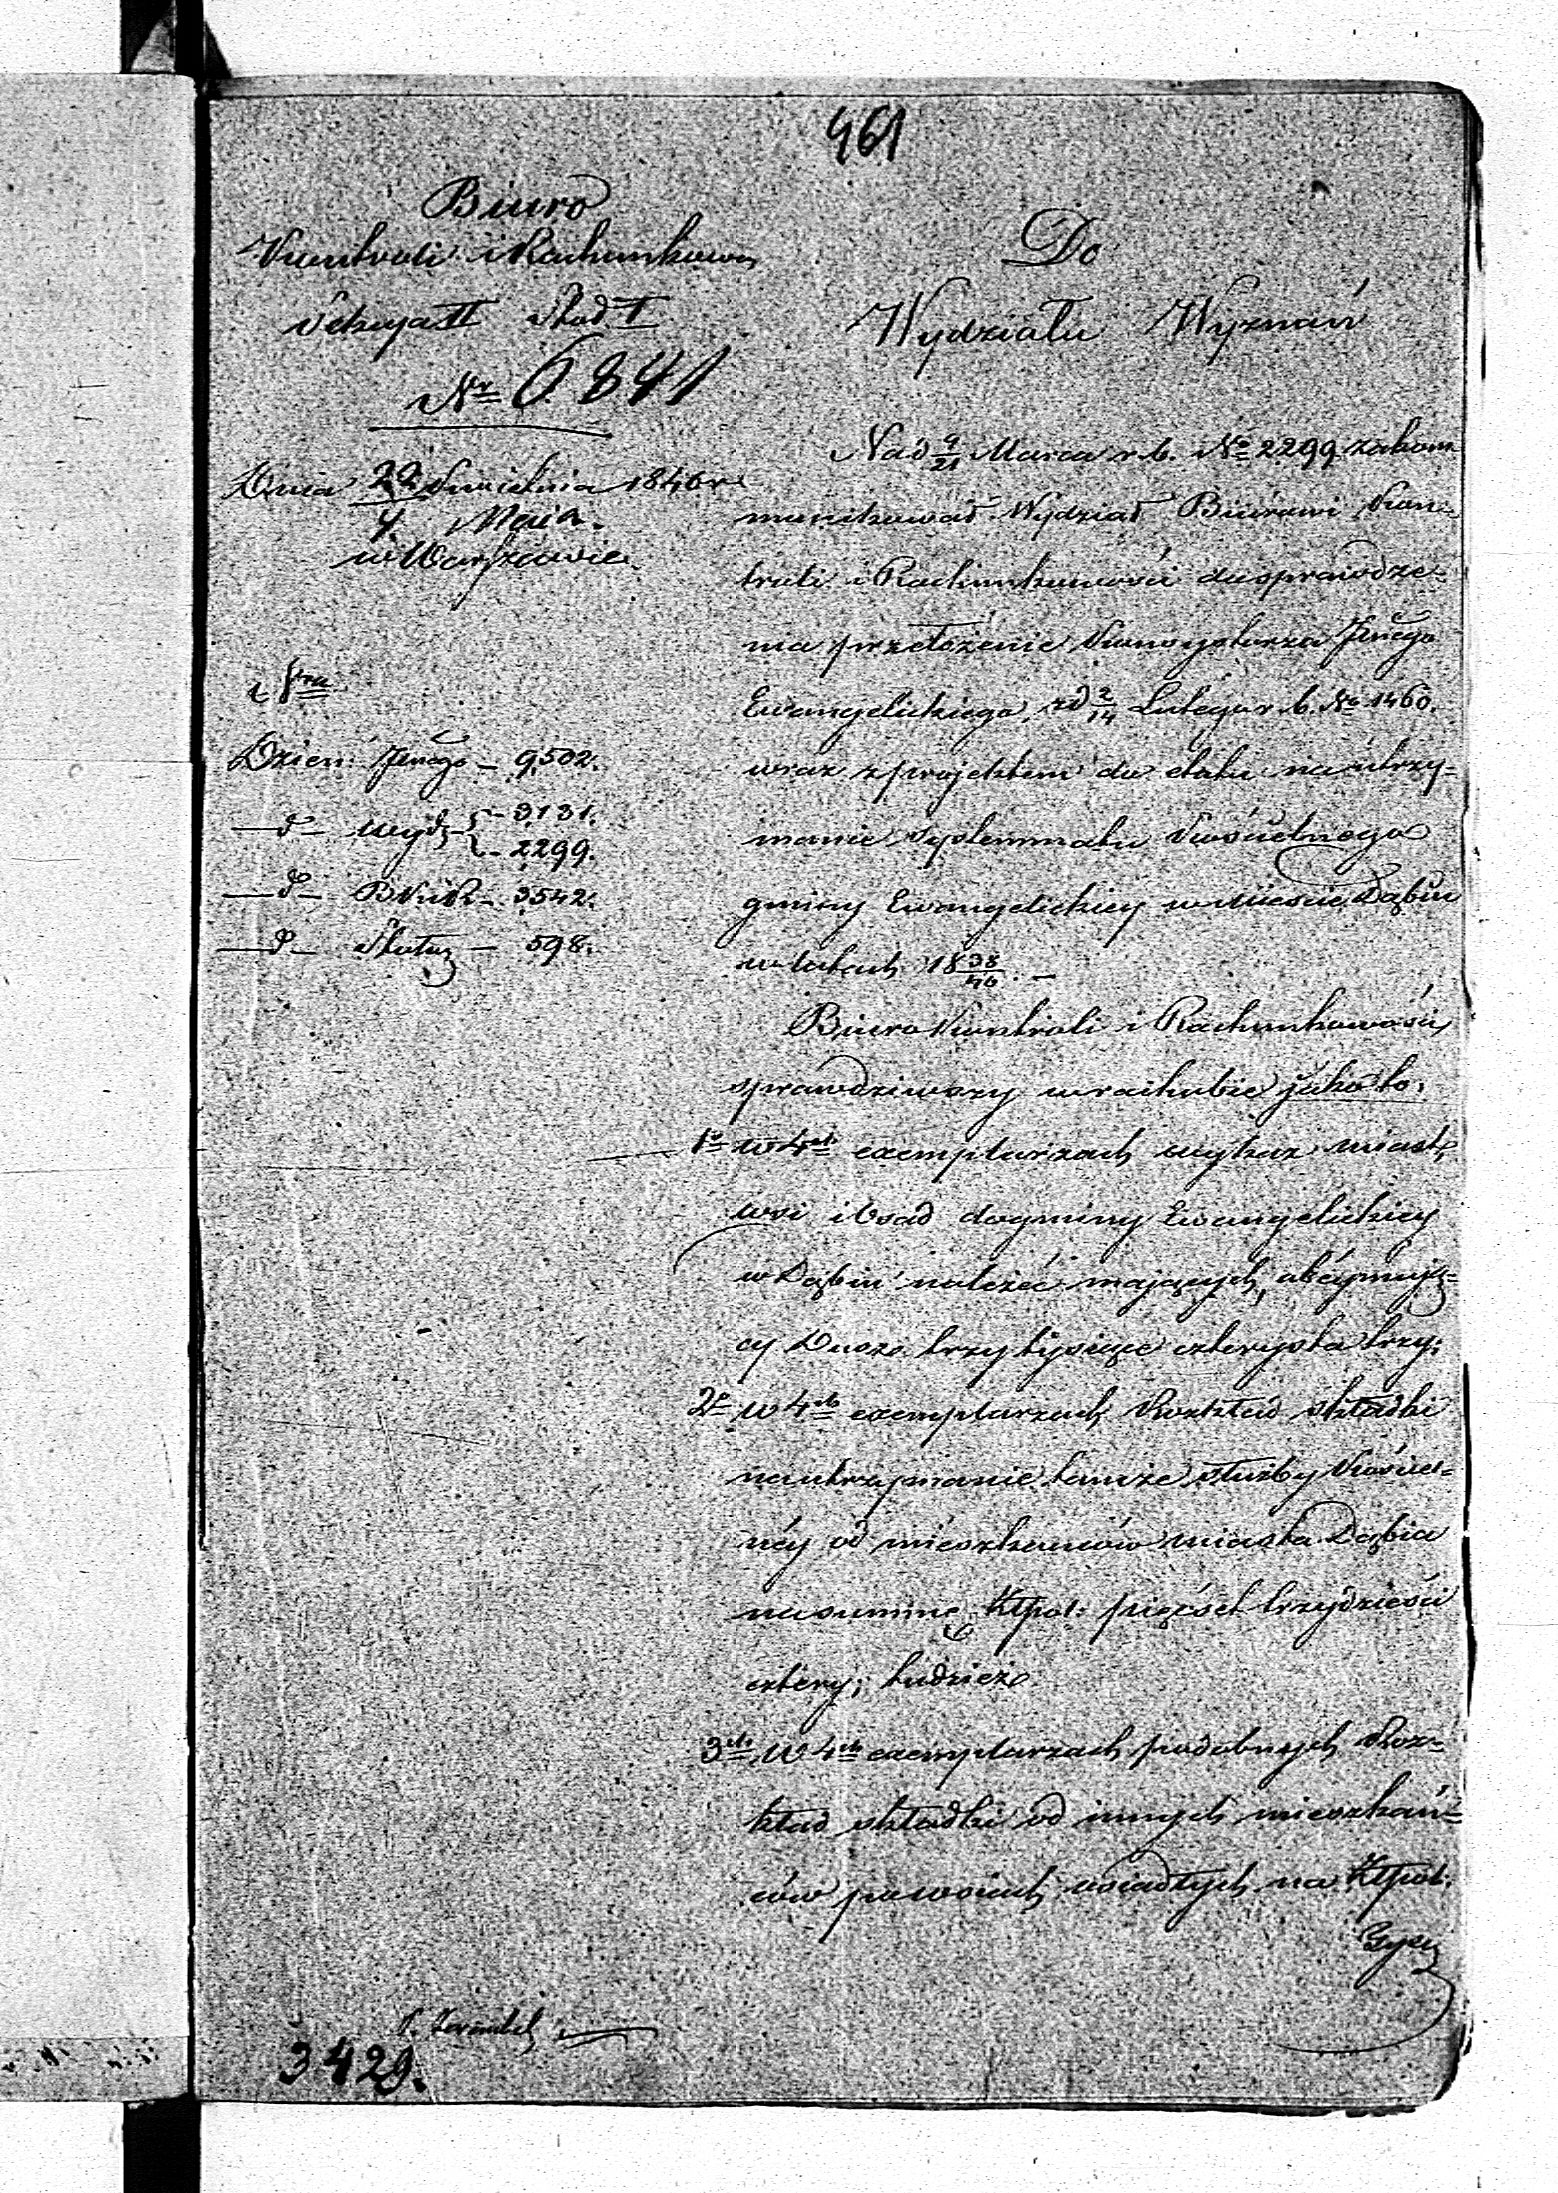 461
Biuro
Kontroli i Rachunkowoś
Sekcya II
Nr 6841
Dnia 22 Kwietnia 1840 r.
4 Maja
w Warszawie
Dzien: Jlnego – 9,502.
– d – Wydz – 3131.
– 2299.
– d – BKuiR – 3542.
– d – – 598.
Do
Wydziału Wyznań
Nad 9/21 Marca r. b. Nr 2299 zakom=
munikował Wydział Biurowi Kon=
troli i Rachunkowości do sprawdze=
nia przełożenie Konsystorza Jlnego
Ewangelickiego, zd 2/14 Lutego r. b. Nr 1460.
wraz z projektem do etatu na utrzy=
manie systemmatu Kościelnego
gminy Ewangelickiey w Mieście Dąbiu
w latach 18 38/46. –
Biuro Kontroli i Rachunkowości
sprawdziwszy w rachubie jako to.
1o w 4ch exemplarzach wykaz miast,
wsi i Osad do gminy Ewangelickiey
w Dąbiu należeć mających, obeymują=
cy Dusz trzy tysiące czterysta trzy;
2o w 4ch exemplarzach Rozkład składki
na utrzymanie tamże służby Kościel=
néy od mieszkańców miasta Dąbia
na summę Złpol: pięćset trzydzieści
cztery; tudzież
3o w 4ch exemplarzach podobnych Roz=
kład składki od innych mieszkań=
ców po wsiach osiadłych na Złpol:
3429.